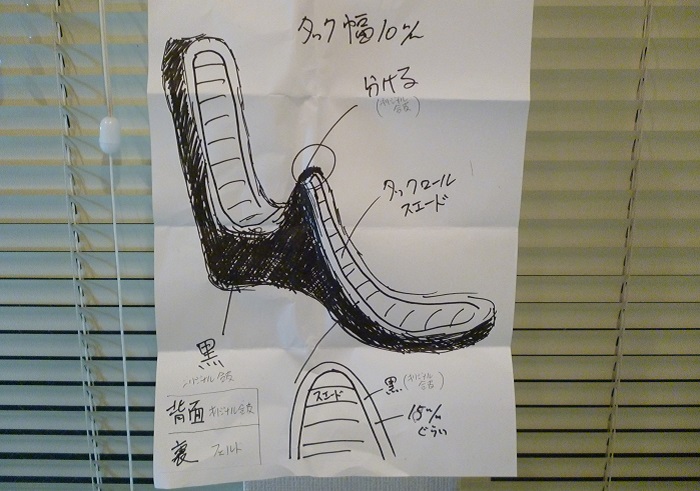 タック幅10㎜
分ける
(オリジナル
合皮)
タックロール
スエード
黒
オリジナル合皮
背面 オリジナル合皮
裏 フェルト
スエード
黒(オリジナル
合皮)
15㎜
ぐらい